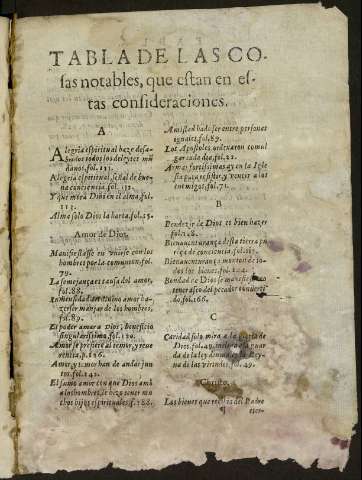 TABLA DE LAS CO-
sas notables, que estan en es-
tas consideraciones.
A
Alegria espiritual haze desa-
bridos todos los deleytes mũ
danos. fol. 131.
Alegria espiritual, señal de bue-
na conciencia. fol. 132.
Y que mira Dios en el alma. fol.
113.
Alma solo Dios la harta. fol. 25.
Amor de Dios.
Manifiestasse en unirse con los
hombres por la comunion. fol.
79.
La semejança es causa del amor.
fol. 88.
amor ha-
zerse manjar de los hombres.
fol. 89.
El poder amar a Dios, beneficio
singularissimo. fol. 120.
Amor se prefiere al temor, y reue
rencia. fol. 126.
Amor, y temor han de andar jun
tos. fol. 142.
El sumo amor con que Dios amò
a los hombres, le hizo tener mu
chos hijos espirituales. f. 188.
Amistad ha de ser entre personas
iguales. fol. 89.
Los Apostoles ordenaron comul
gar cada dia. fol. 22.
Armas fortissimas ay en la Igle
sia para resistir, y vencer a los
enemigos. fol. 71.
B
Bendezir de Dios, es bien hazer
fol. 28.
Bienauenturança desta tierra
de conciencia. fol.
Bienauenturança
dos los bienes. fol. 104.
Bondad de Dios
del pecador conuerti-
do. fol. 166.
C
Caridad solo mira a la gloria de
Dios. fol. 49.
de la ley
na de las virtudes. fol. 49.
Christo.
Los bienes que del Padre
eter-